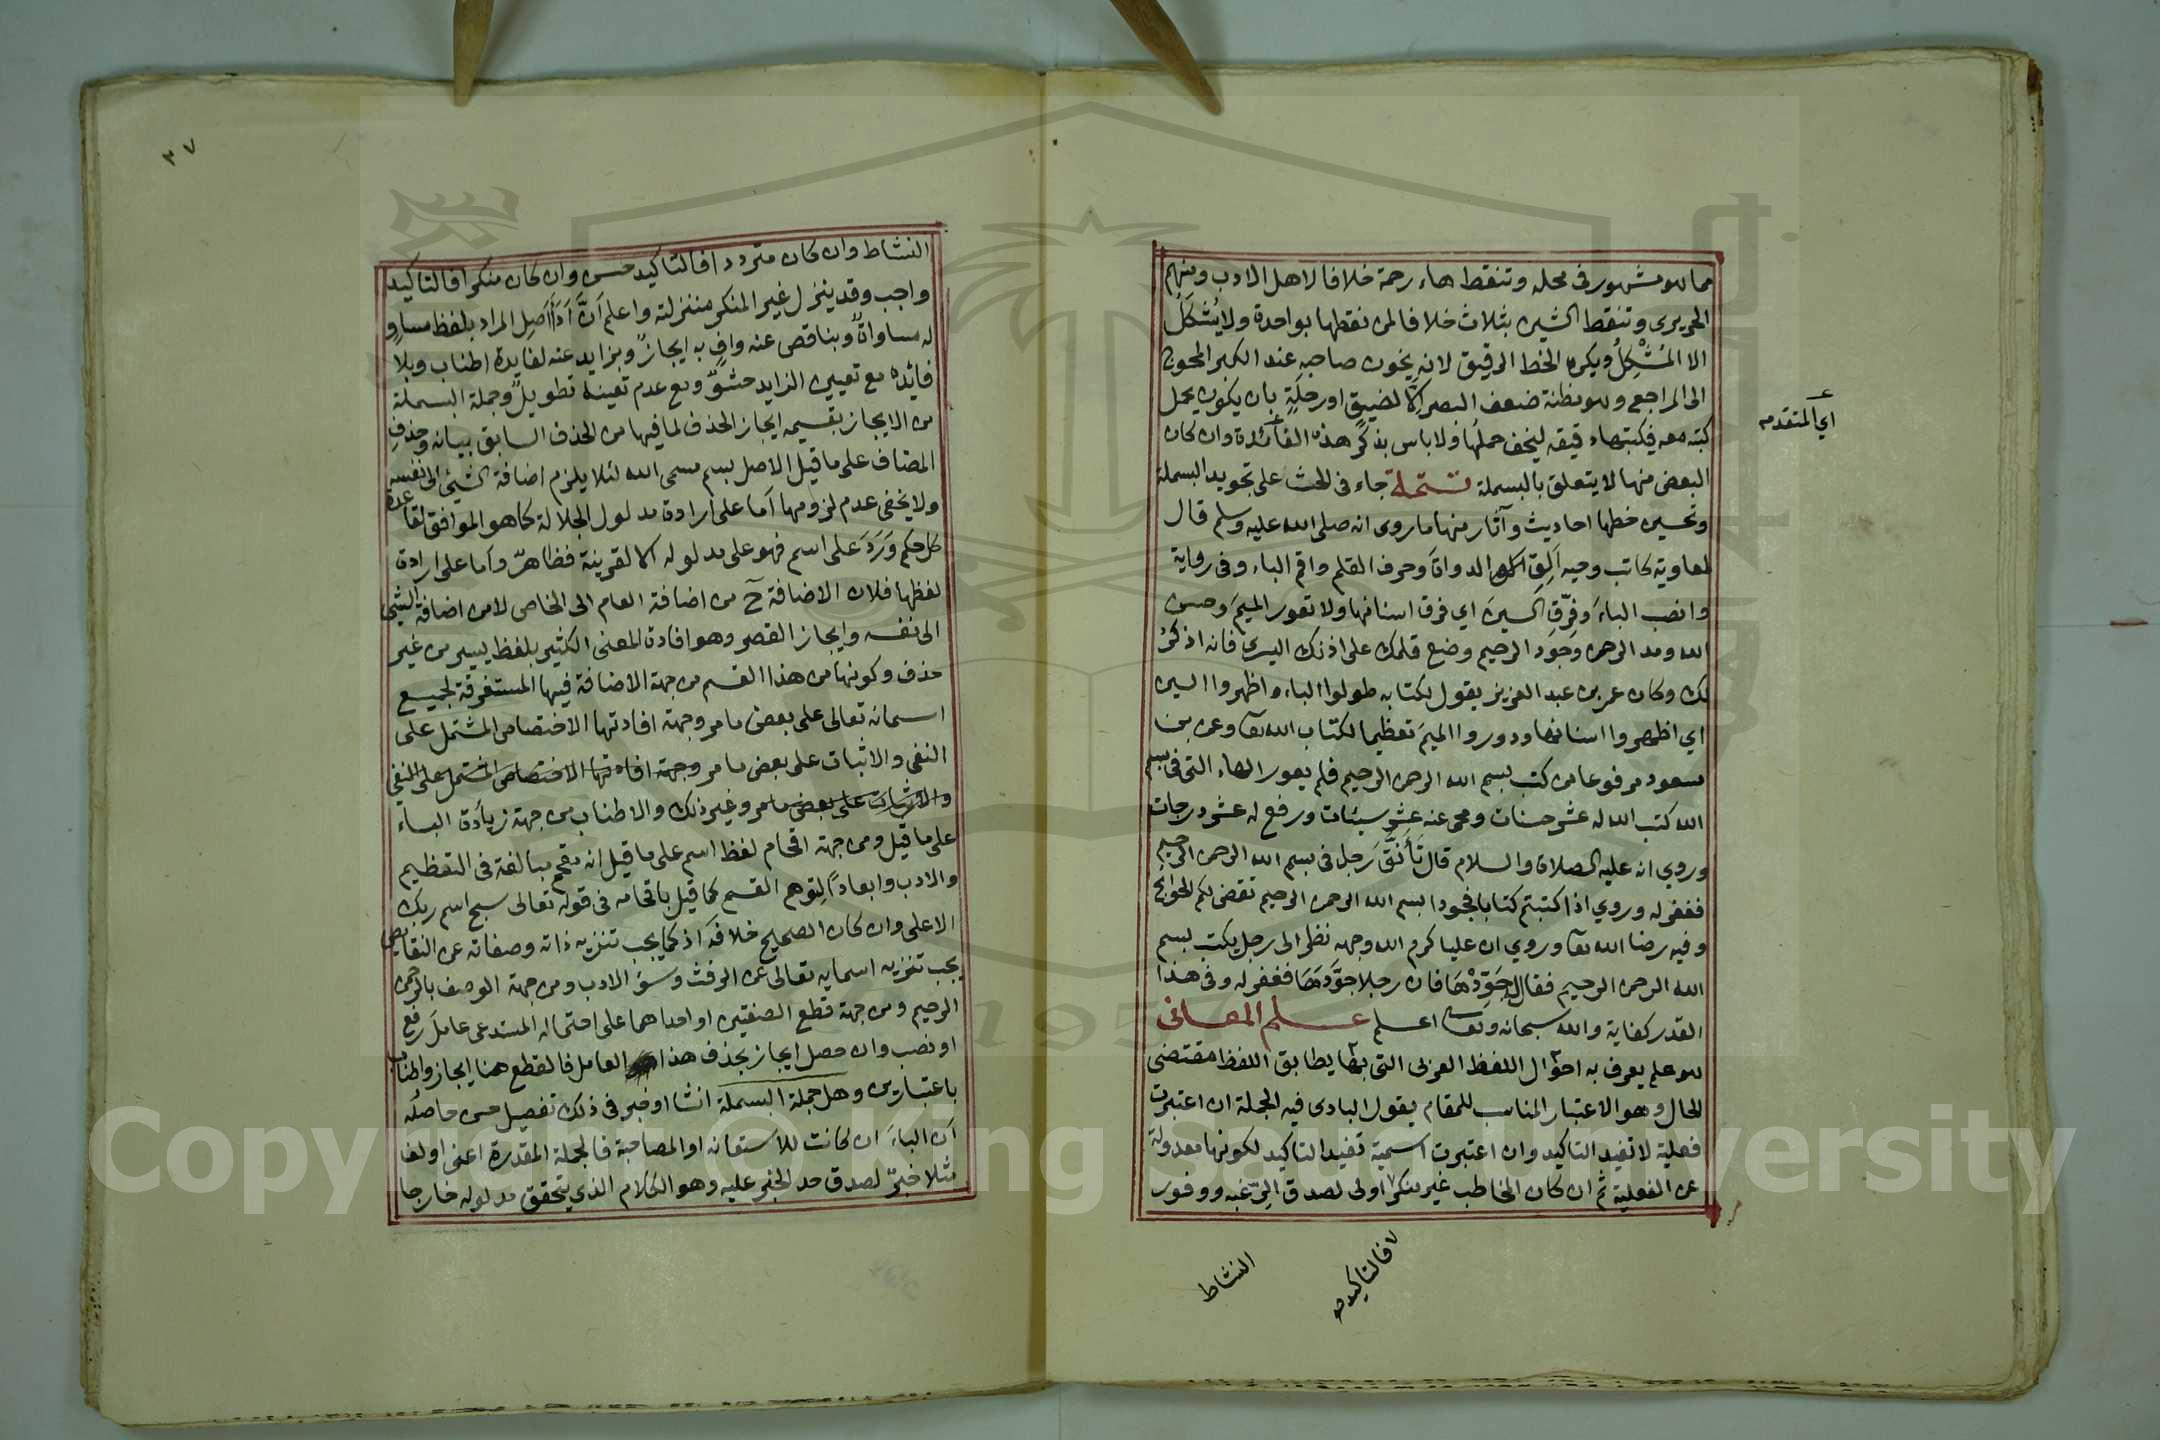 مما هو مشهور في محله وتنقط هاء رحمة خلافا لاهل الادب ومنهم
الحريري وتنقط الشين بثلاث خلافا لمن نقطها بواحدة ولا يُشكَلُ
الا المُشْكِلُ ويكره الخط الرقيق لانه يخون صاحبه عند الكبر المحوج
الى المراجع وهو مظنة ضعف البصر الا لضيق او رحلةٍ بان يكون يحمل
كتبه معه فيكتبها دقيقه ليخف حملها ولا باس بذكر هذه الفائدة وان كان
البعض منها لا يتعلق بالبسملة تتمة جاء في الحث على تجويد البسملة
وتحسين خطها احاديث وآثار منها ما روى انه صلى الله عليه وسلم قال
لمعاوية كاتب وحيه اَلِقِ الدواةَ وحرف القلم واقم الباء وفي رواية
وانصب الباءَ وفرّقِ السينَ اي فرق اسنانها ولا تعور الميمَ وحسن
الله ومد الرحمن وجوّد الرحيم وضع قلمك على اذنك اليسرى فانه اذكرُ
لك وكان عمر بن عبد العزيز يقول لكتابه طولوا الباء واظهروا السين
اي اظهروا اسنانها ودوروا الميمَ تعظيما لكتاب الله تعا وعن بن
مسعود مرفوعا من كتب بسم الله الرحمن الرحيم فلم يعور الهاء التي في بسم
الله كتب الله له عشر حسنات ومحى عنه عشر سيئات ورفع له عشر درجات
وروي انه عليه الصلاة والسلام قال تَأَنَّقَ رجل في بسم الله الرحمن الرحيم
فغفر له وروي اذا كتبتم كتابا فجودوا بسم الله الرحمن الرحيم تقضى لكم الحوائج
وفيه رضا الله تعا وروي ان عليا كرم الله وجهه نظر الى رجل يكتب بسم
الله الرحمن الرحيم فقال جَوِّدْهَا فان رجلا جوَّدَهَا فغفر له وفي هذا
القدر كفاية والله سبحانه وتعالى اعلم علم المعانى
هو علم يعرف به احوال اللفظ العربي التي بها يطابق اللفظ مقتضى
الحال وهو الاعتبار المناسب للمقام يقول البادى فيه الجملة ان اعتبرت
فعلية لا تفيد التاكيد وان اعتبرت اسمية تفيد التاكيد لكونها معدولة
عن الفعلية ثم ان كان المخاطب غير منكر اولى لصدق الرغبه ووفور
اي المتقدمه
فالتاكيد
النشاط
٣٧
النشاط وان كان مترددا فالتاكيد حسن وان كان منكرا فالتاكيد
واجب وقد ينزل غير المنكر منزلته واعلم اَنَّ اَدَاءَ اَصِل المراد بلفظ مساوٍ
له مساواةٌ وبناقص عنه وافٍ به ايجازٌ وبزايد عنه لفايدة اطناب وبلا
فائده مع تعيين الزايد حشوٌّ ومع عدم تعينه تطويلٌ وجملة البسملة
من الايجاز بقسيمه ايجاز الحذف لما فيها من الحذف السابق بيانه وحذفِ
المضاف على ما قيل الاصل بسم مسمى الله لئلا يلزم اضافة الشيئ الى نفسه
ولا يخفى عدم لزومها اَما على ارادة مدلول الجلالة كما هو الموافق لقاعدة
كل حكم وَرَدَ على اسم فهو على مدلوله الا لقرينة فظاهرٌ واَما على ارادة
لفظها فلان الاضافة ح من اضافة العام الى الخاص لا من اضافة الشيئ
الى نفسه وايجاز القصر وهو افادة المعنى الكثير بلفظ يسير من غير
حذف وكونها من هذا القسم من جهة الاضافة فيها المستغرقة لجميع
اسمائه تعالى على بعض ما مر وجهة افادتها الاختصاص المشتمل على
النفى والاثبات على بعض ما مر وجهة افادتها الاختصاص المشتمل على النفي
والاثبات على بعض ما مر وغير ذلك والاطناب من جهة زيادة الباء
على ما قيل ومن جهة اقحام لفظ اسم على ما قيل انه مقحم مبالغة في التعظيم
والادب وابعادًا لتوهم القسم كما قيل باقحامه في قوله تعالى سبح اسم ربك
الاعلى وان كان الصحيح خلافه اذ كما يجب تنزيه ذاته وصفاته عن النقايص
يجب تنزيه اسمايه تعالى عن الرفث وسؤ الادب ومن جهة الوصف بالرحمن
الرحيم ومن جهة قطع الصفتين او احداهما على احتماله المستدعى عاملَ رفع
او نصب وان حصل ايجاز بحذف هذا العامل فالقطع هنا ايجاز واطناب
باعتبارين وهل جملة البسملة انشا او خبر في ذلك تفصيل حسن حاصلُه
اَن الباءَ ان كانت للاستعانه او المصاحبة فالجملة المقدرة اعنى اولفا
مثلا خبرٌ لصدق حد الخبر عليه وهو الكلام الذي يتحقق مدلوله خارجا
Copyright © King Saud University
1957